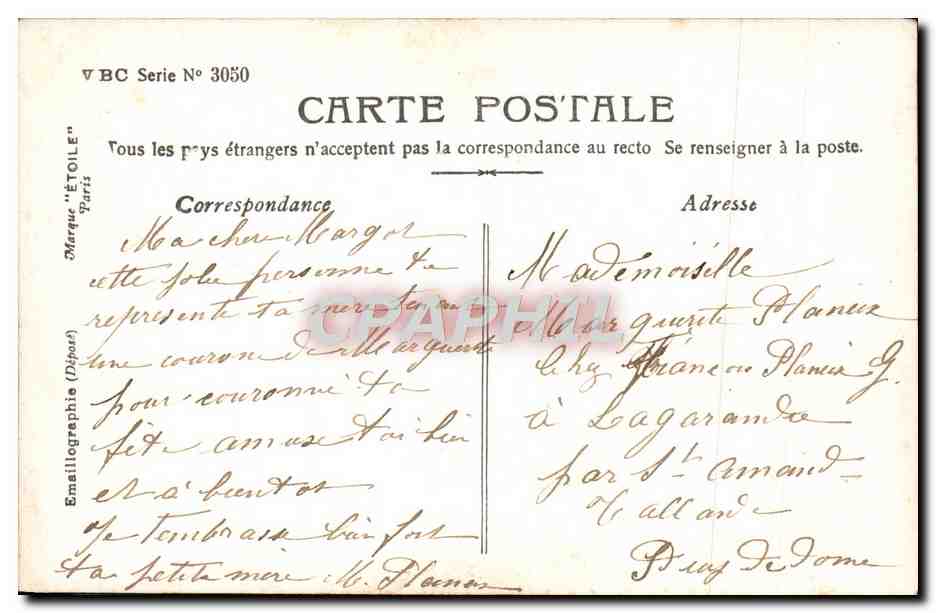 VBC Serie Nº 3050
CARTE POSTALE
Tous les pays étrangers n'acceptent pas la correspondance au recto Se renseigner à la poste.
Marque "ÉTOILE"
Paris
Emaillographie (Déposé)
Correspondance
Ma chere Margot
cette jolie personne te
represente ta mere
une courone de Marguerite
pour couronné ta
fête amuse toi bien
et à bientot
Je tembrasse bien fort
ta petite mère M. Planeix
Adresse
Mademoiselle
Marguerite Planeix
Chez Planeix G.
à Lagarandie
par St Amand
Tallande
Puy de dome
CPARPHIL